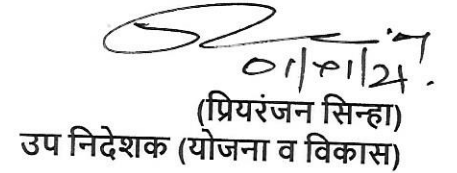 01/01/21.
(प्रियरंजन सिन्हा)
उप निदेशक (योजना व विकास)